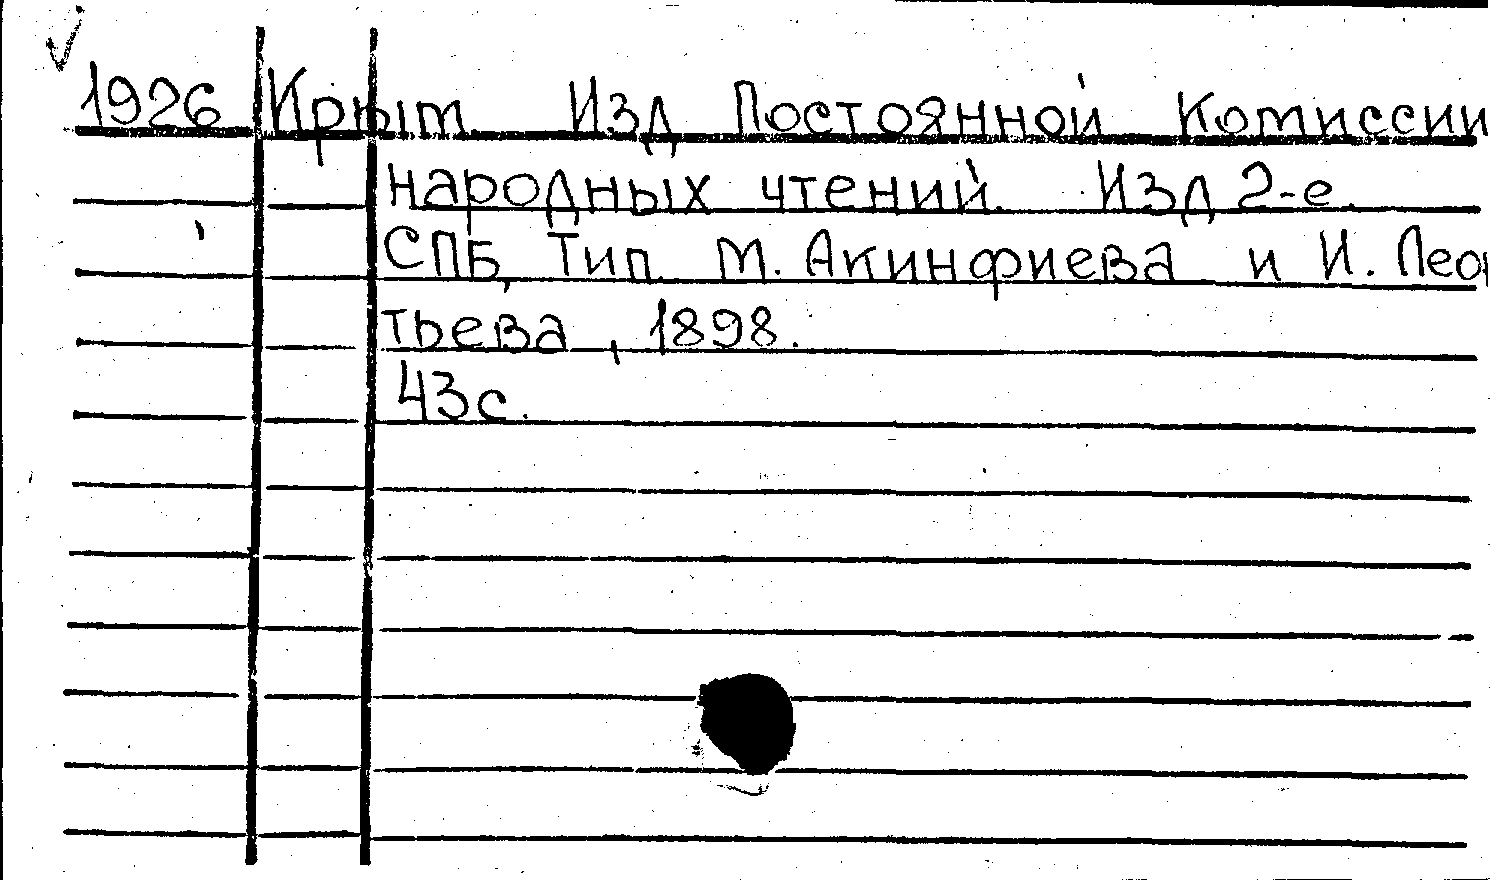 1926 Крым Изд Постоянной Комиссии
народных чтений. Изд 2-е.
СПБ, Тип. М. Акинфиева и И. Леон
тьева, 1898.
43с.